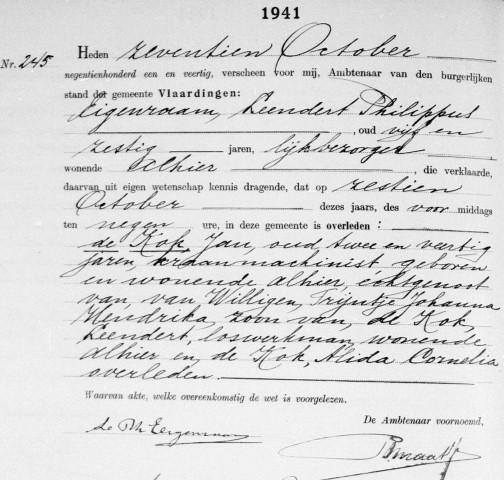 1941
Nr. 245
Heden zeventien October
negentienhonderd een en veertig, verscheen voor mij, Ambtenaar van den burgerlijken
stand der gemeente Vlaardingen:
Eigenraam, Leendert Philippus
, oud vijf en
zestig jaren, lijkbezorger
wonende alhier, die verklaarde,
daarvan uit eigen wetenschap kennis dragende, dat op zestien
October dezes jaars, des voor middags
ten negen ure, in deze gemeente is overleden:
de Kok, Jan, oud twee en veertig
jaren, kraanmachinist, geboren
en wonende alhier, echtgenoot
van, van Willigen, Trijntje Johanna
Hendrika, zoon van, de Kok,
Leendert, loswerkman, wonende
alhier en, de Kok, Alida Cornelia
overleden.
Waarvan akte, welke overeenkomstig de wet is voorgelezen.
De Ambtenaar voornoemd,